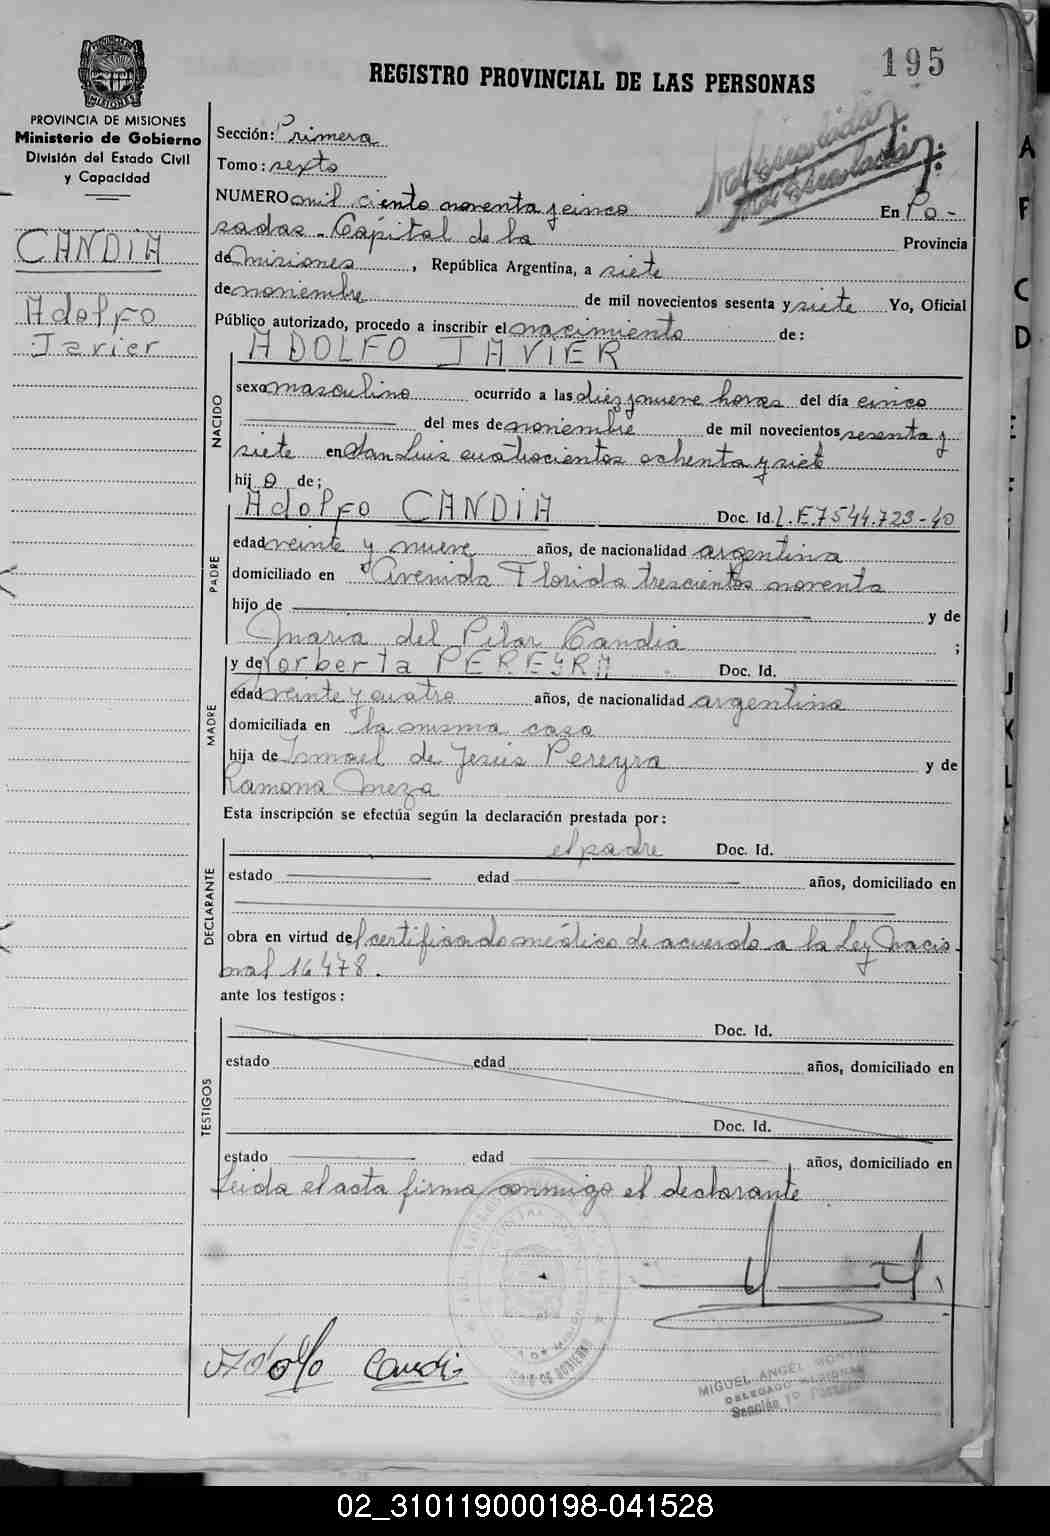 195
REGISTRO PROVINCIAL DE LAS PERSONAS
PROVINCIA DE MISIONES
Ministerio de Gobierno
División del Estado Civil
y Capacidad
CANDIA
Adolfo
Javier
Sección: Primera
Tomo: sexto
NUMERO mil ciento noventa y cinco En Po-
sadas - Capital de la Provincia
de Misiones, República Argentina, a siete
de noviembre de mil novecientos sesenta y siete Yo, Oficial
Público autorizado, procedo a inscribir el nacimiento de:
ADOLFO JAVIER
NACIDO
sexo masculino ocurrido a las diez y nueve horas del día cinco
del mes de noviembre de mil novecientos sesenta y
siete en San Luis cuatrocientos ochenta y siete
hijo de;
PADRE
Adolfo CANDIA Doc. Id. L.E.7544.723-40
edad veinte y nueve años, de nacionalidad argentina
domiciliado en Avenida Florida trescientos noventa
hijo de y de
Maria del Pilar Candia ;
MADRE
y de Norberta PEREYRA Doc. Id.
edad veinte y cuatro años, de nacionalidad argentina
domiciliada en la misma casa
hija de Ismael de Jesús Pereyra y de
Ramona Meza
Esta inscripción se efectúa según la declaración prestada por:
DECLARANTE
el padre Doc. Id.
estado edad años, domiciliado en
obra en virtud del certificado médico de acuerdo a la Ley Nacio-
nal 16478.
ante los testigos:
TESTIGOS
Doc. Id.
estado edad años, domiciliado en
Doc. Id.
estado edad años, domiciliado en
Leida el acta firma conmigo el declarante
Adolfo Candia
MIGUEL ANGEL
DELEGADO
Sección
A
F
C
D
E
F
I
J
K
L
02_310119000198-041528